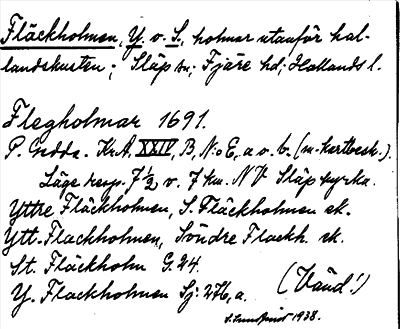 Fläckholmen, Y. o. S., holmar utanför hal-
landskusten; Släp sn; Fjäre hd; Hallands l.
Flegholmar 1691.
P. Gedda. KrA. XXIV, B, N:o E, a o. b. (u-kartbesk.).
Läge resp. 7½ o. 7 km. NV Släp kyrka.
Yttre Fläckholmen, S. Fläckholmen ek.
Ytt. Flackholmen, Söndre Flackh. sk.
St. Fläckholm G. 24.
Y. Flackholmen Sj: 276, a.
(Vänd!)
1938.